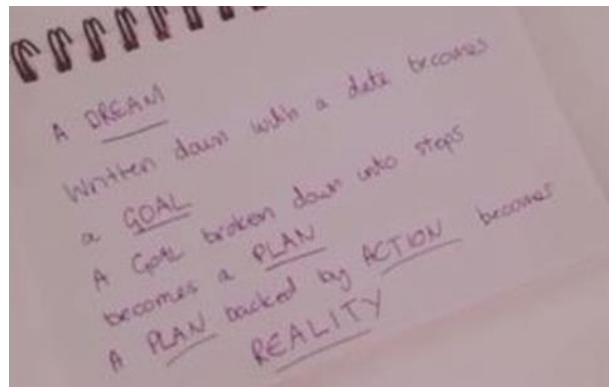 A DREAM
Written down with a date becomes
a GOAL
A GOAL broken down into steps
becomes a PLAN
A PLAN backed by ACTION becomes
REALITY